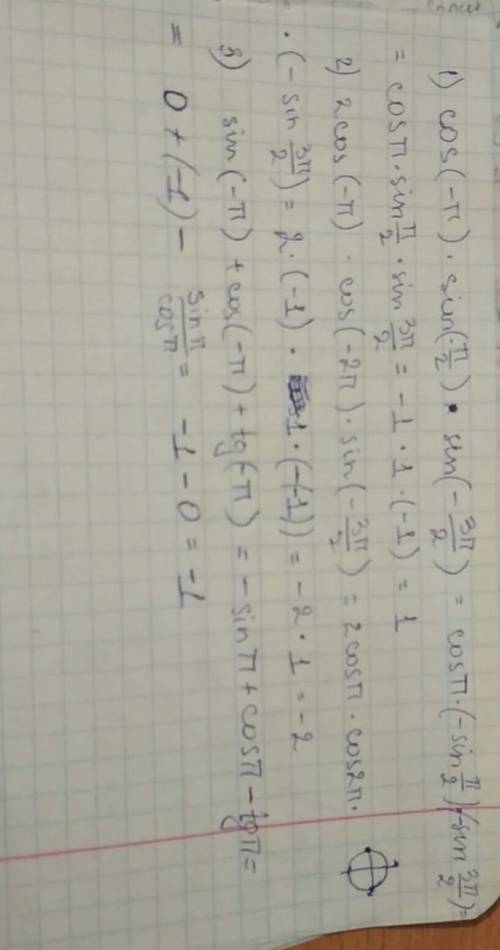 1) cos(-π) · sin(-π/2) · sin(-3π/2) = cosπ·(-sin π/2)(-sin 3π/2)=
= cosπ · sin π/2 · sin 3π/2 = -1 · 1 · (-1) = 1
2) 2cos(-π) · cos(-2π) · sin(-3π/2) = 2cosπ · cos2π·
·(-sin 3π/2) = 2·(-1) · 1·(-(-1)) = -2 · 1 = -2
3) sin(-π) + cos(-π) + tg(-π) = -sinπ + cosπ - tgπ =
= 0 + (-1) - sinπ/cosπ = -1 - 0 = -1